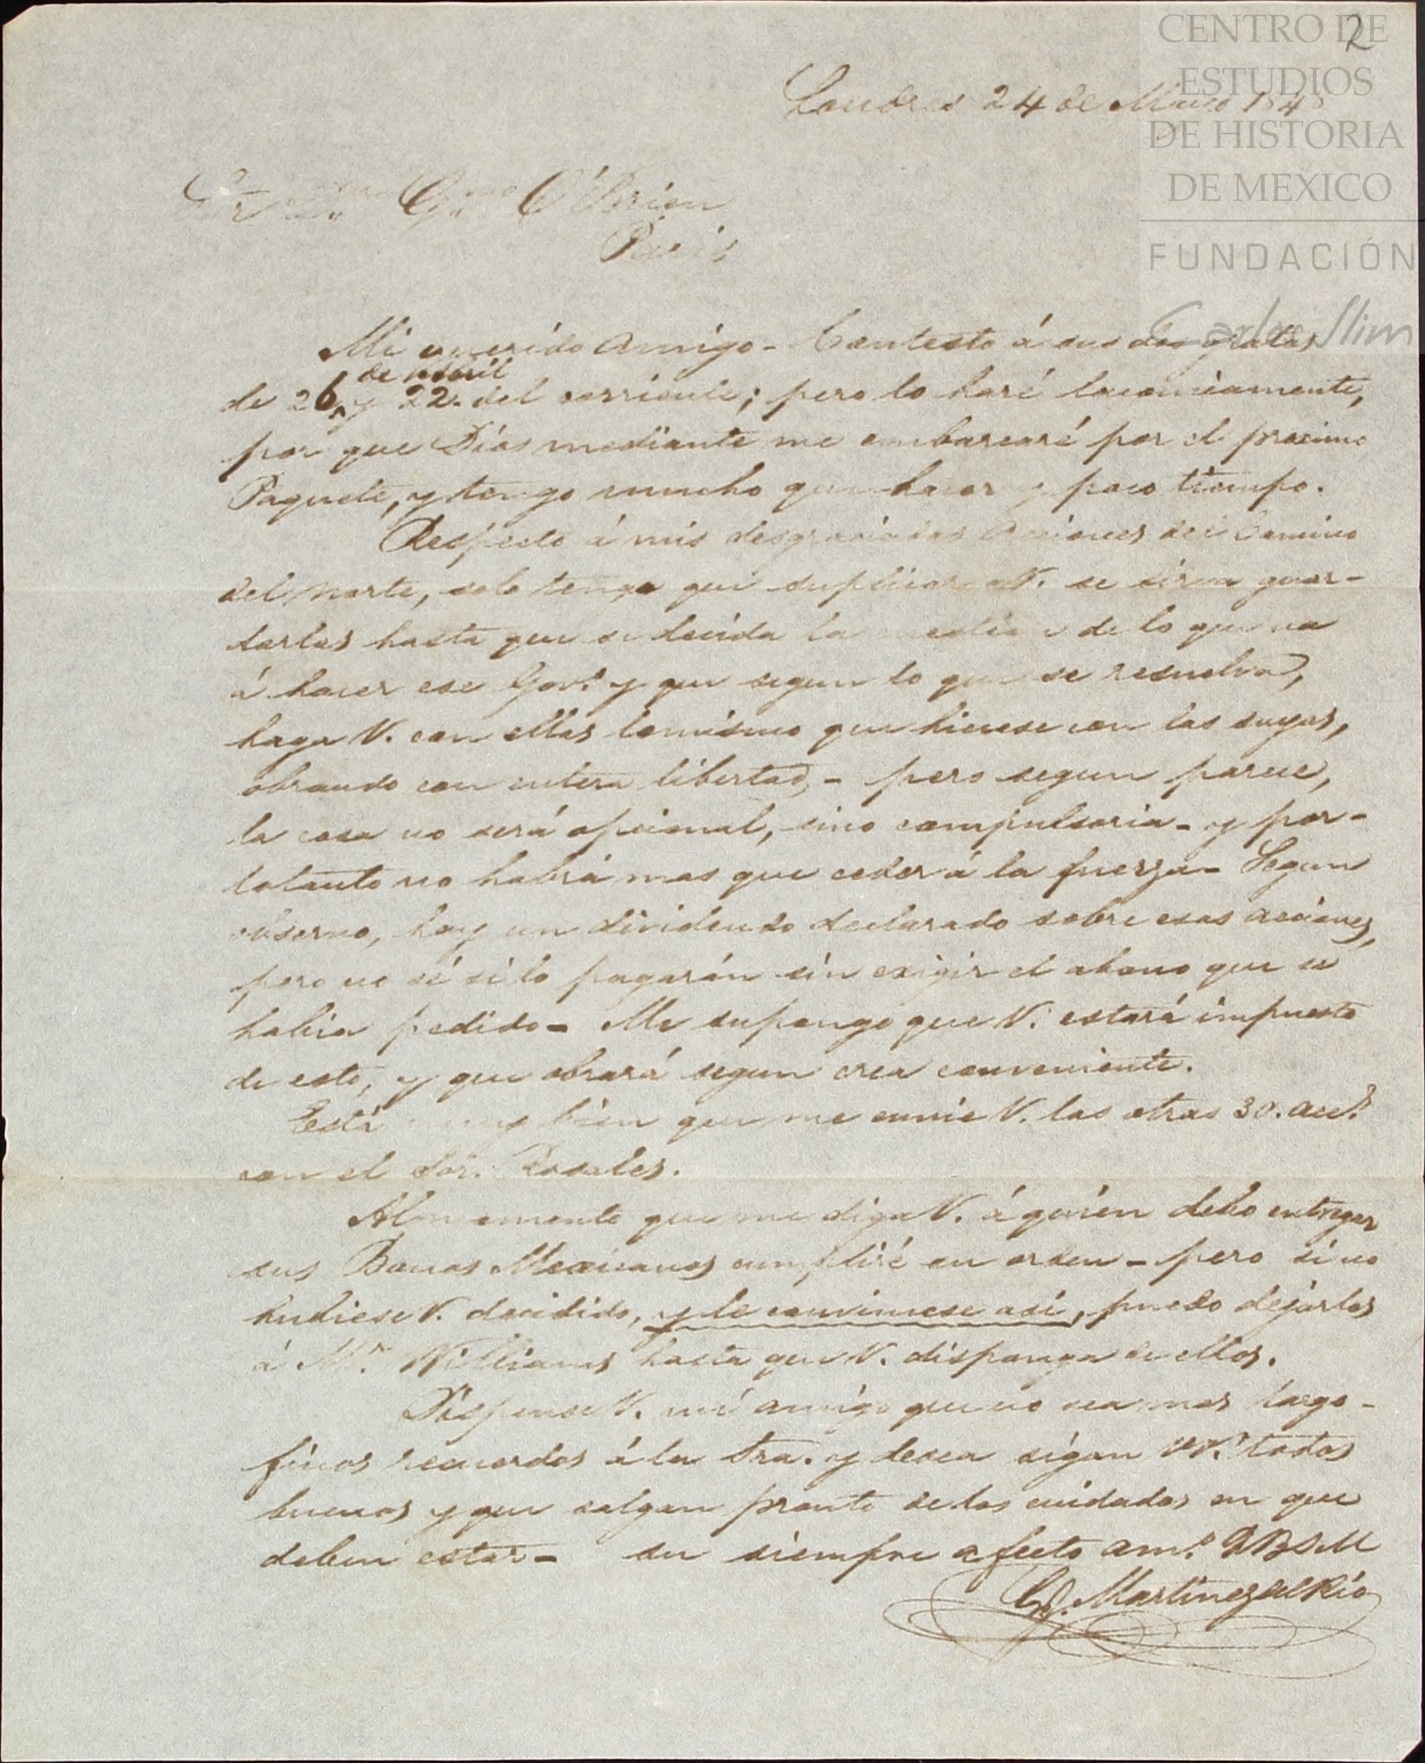 2
CENTRO DE
ESTUDIOS
DE HISTORIA
DE MEXICO
FUNDACIÓN
Carlos Slim
Londres 24 de Mayo 1848
Sr Dn Gmo O'Brien
Paris
Mi querido amigo - Contesto á sus dos gratas
de abril
de 26 y 22. del corriente; pero lo haré laconicamente,
por que Dios mediante me embarcaré por el proximo
Paquete, y tengo mucho que hacer y poco tiempo.
Respecto á mis desgraciadas acciones del Camino
del norte, solo tengo que suplicar a V. se sirva guar-
darlas hasta que se decida la cuestion de lo que va
á hacer ese Govo. y que segun lo que se resuelva,
haga V. con ellas lo mismo que hiciese con las suyas,
obrando con entera libertad, - pero segun parece,
la cosa no será opcional, sino compulsoria - y por-
lotanto no habrá mas que ceder á la fuerza - Segun
observo, hay un dividendo declarado sobre esas acciones,
pero no sé si lo pagarán sin exigir el abono que se
habia pedido - Me supongo que V. estará impuesto
de esto, y que obrará segun crea conveniente.
Está muy bien que me envie V. las otras 30. accs.
con el Sor. Rosales.
Al momento que me diga V. á quién debo entregar
sus Bonos Mexicanos cumpliré su orden - pero si no
hubiese V. decidido, y le conviniese asi, puedo dejarlos
á Mr. Williams hasta que V. disponga de ellos.
Dispense V. mi amigo que no sea mas largo -
finos recuerdos á la Sra. y desea sigan VV. todos
buenos y que salgan pronto de los cuidados en que
deben estar - su siempre afecto amo. QBSM
G. Martinez del Rio